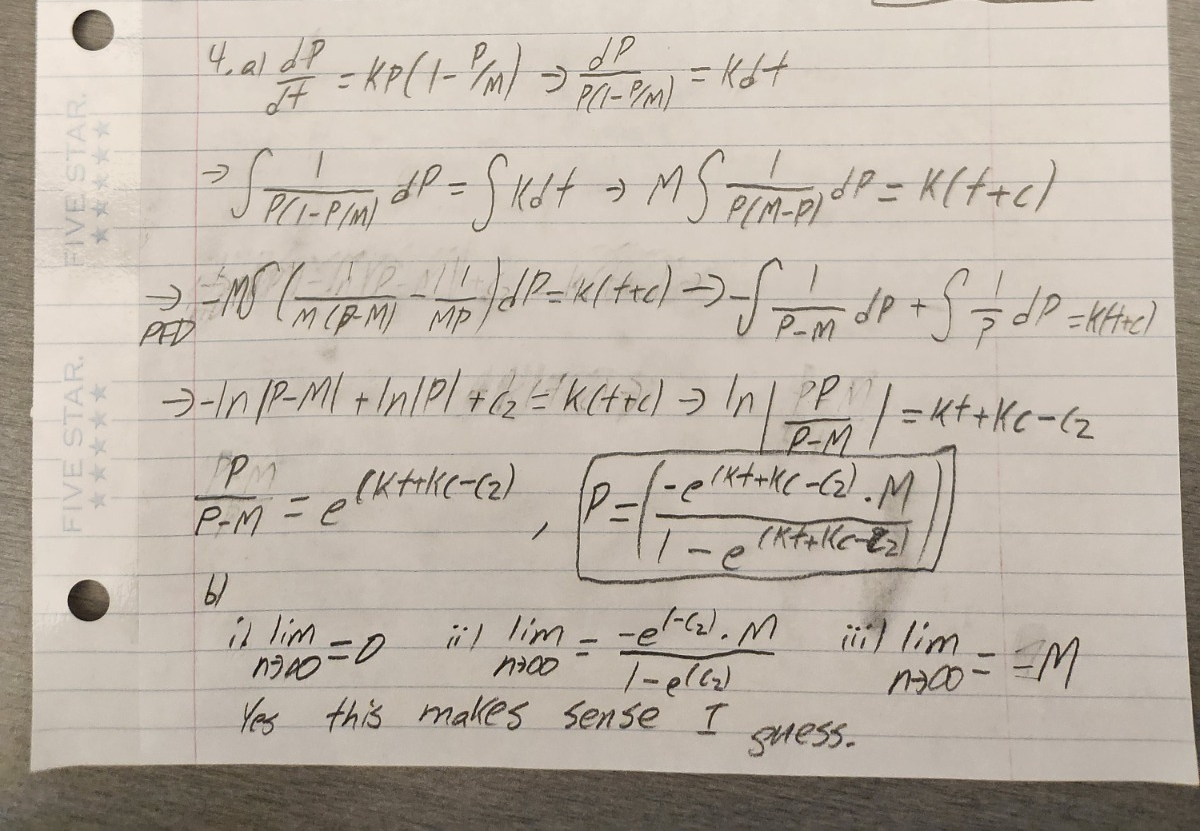 4. a) dP/dt = KP(1 - P/M) → dP/P(1-P/M) = Kdt
→ ∫ 1/P(1-P/M) dP = ∫ Kdt → M ∫ 1/P(M-P) dP = K(t+c)
→ PFD -M∫ (1/M(P-M) - 1/MP) dP = K(t+c) → -∫ 1/P-M dP + ∫ 1/P dP = K(t+c)
→ -ln|P-M| + ln|P| + C₂ = K(t+c) → ln|P/P-M| = Kt+Kc-C₂
P/P-M = e^(Kt+Kc-C₂) , P = (-e^(Kt+Kc-C₂) · M / 1 - e^(Kt+Kc-C₂))
b)
i) lim n→∞ = 0 ii) lim n→∞ = -e^(-C₂) · M / 1 - e^(C₂) iii) lim n→∞ = = M
Yes this makes sense I guess.
FIVE STAR.
FIVE STAR.